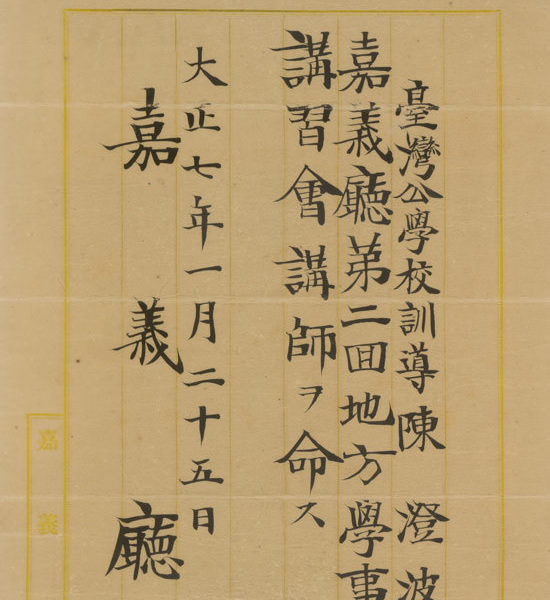 臺灣公學校訓導陳澄波
嘉義廳第二回地方學事
講習會講師ヲ命ス
大正七年一月二十五日
嘉義廳
嘉義